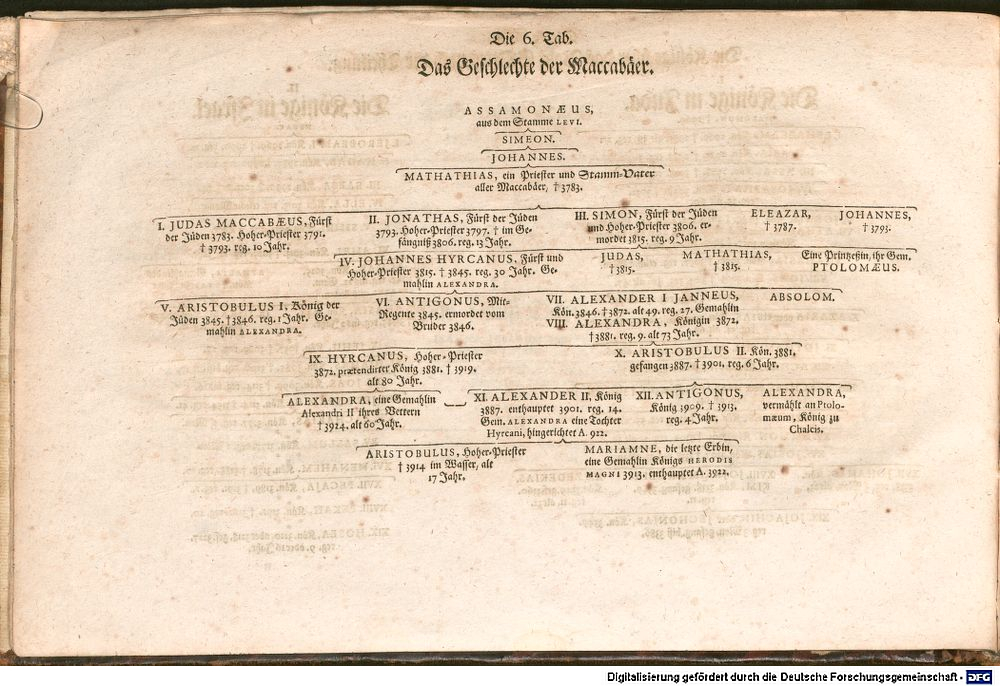 Die 6. Tab.
Das Geschlechte der Maccabäer.
ASSAMONÆUS,
aus dem Stamme LEVI.
SIMEON.
JOHANNES.
MATHATHIAS, ein Priester und Stamm-Vater
aller Maccabäer, † 3783.
I. JUDAS MACCABÆUS, Fürst
der Jüden 3783. Hoher-Priester 3791.
† 3793. reg. 10 Jahr.
II. JONATHAS, Fürst der Jüden
3793. Hoher-Priester 3797. † im Ge-
fängniß 3806. reg. 13 Jahr.
III. SIMON, Fürst der Jüden
und Hoher-Priester 3806. er-
mordet 3815. reg. 9 Jahr.
ELEAZAR,
† 3787.
JOHANNES,
† 3793.
IV. JOHANNES HYRCANUS, Fürst und
Hoher-Priester 3815. † 3845. reg. 30 Jahr. Ge-
mahlin ALEXANDRA.
JUDAS,
† 3815.
MATHATHIAS,
† 3815.
Eine Printzeßin, ihr Gem.
PTOLOMÆUS.
V. ARISTOBULUS I, König der
Jüden 3845. † 3846. reg. 1 Jahr. Ge-
mahlin ALEXANDRA.
VI. ANTIGONUS, Mit-
Regente 3845. ermordet vom
Bruder 3846.
VII. ALEXANDER I JANNEUS,
Kön. 3846. † 3872. alt 49. reg. 27. Gemahlin
VIII. ALEXANDRA, Königin 3872,
† 3881. reg. 9. alt 73 Jahr.
ABSOLOM.
IX. HYRCANUS, Hoher-Priester
3872. prætendirter König 3881. † 3919.
alt 80 Jahr.
X. ARISTOBULUS II. Kön. 3881,
gefangen 3887. † 3901. reg. 6 Jahr.
ALEXANDRA, eine Gemahlin
Alexandri II ihres Vettern
† 3924. alt 60 Jahr.
XI. ALEXANDER II, König
3887. enthauptet 3901. reg. 14.
Gem. ALEXANDRA eine Tochter
Hyrcani, hingerichtet A. 922.
XII. ANTIGONUS,
König 3909. † 3913.
reg. 4 Jahr.
ALEXANDRA,
vermählt an Ptolo-
mæum, König zu
Chalcis.
ARISTOBULUS, Hoher-Priester
† 3914 im Wasser, alt
17 Jahr.
MARIAMNE, die letzte Erbin,
eine Gemahlin Königs HERODIS
MAGNI 3913. enthauptet A. 3922.
Digitalisierung gefördert durch die Deutsche Forschungsgemeinschaft - DFG